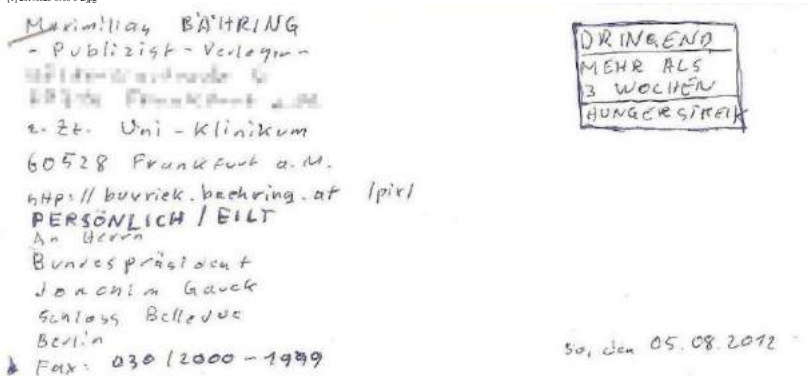 Maximilian BÄHRING
- Publizist - Verleger -
z. Zt. Uni - Klinikum
60528 Frankfurt a. M.
http:// buvriek.baehring.at /pix/
PERSÖNLICH / EILT
An Herrn
Bundespräsident
Joachim Gauck
Schloss Bellevue
Berlin
Fax: 030 / 2000 - 1999
DRINGEND
MEHR ALS
3 WOCHEN
HUNGERSTREIK
So, den 05.08.2012